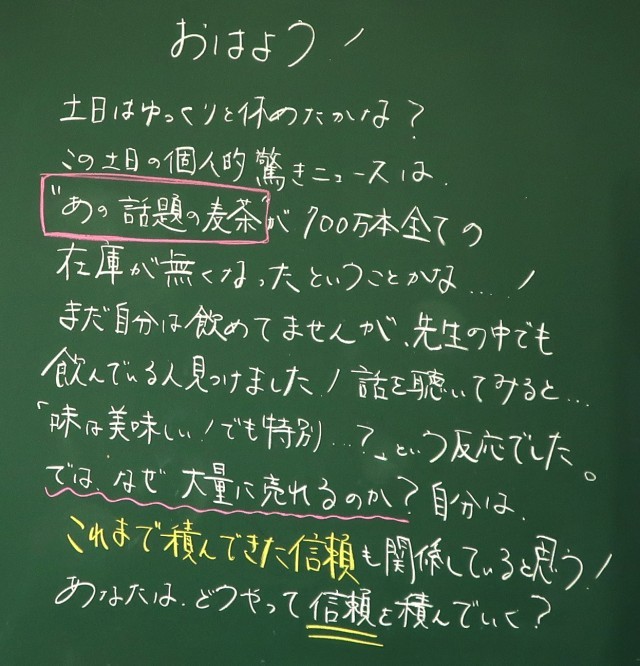 おはよう!
土日はゆっくりと休めたかな?
この土日の個人的驚きニュースは、
"あの話題の麦茶"が700万本全ての
在庫が無くなったということかな....!
まだ自分は飲めてませんが、先生の中でも
飲んでいる人見つけました!話を聴いてみると...
「味は美味しい!でも特別...?」という反応でした。
では、なぜ大量に売れるのか?自分は、
これまで積んできた信頼も関係していると思う!
あなたは、どうやって信頼を積んでいく?